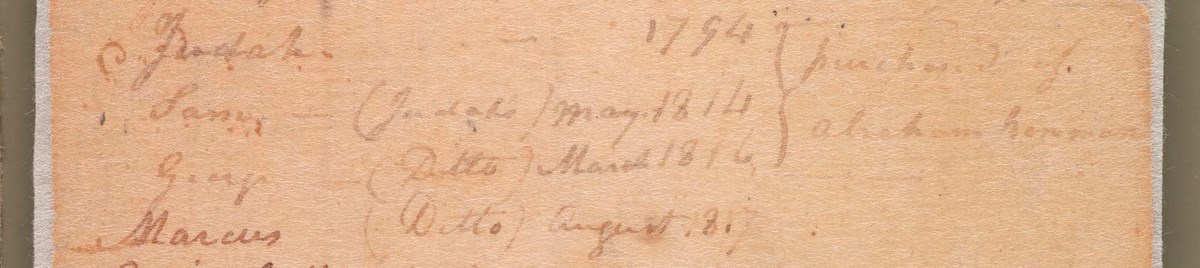 Judah. — 1794 purchased of
Sam. — (Judahs) may. 1814 Abraham
George — (Ditto) March 1816
Marcus (Ditto) August. 1817